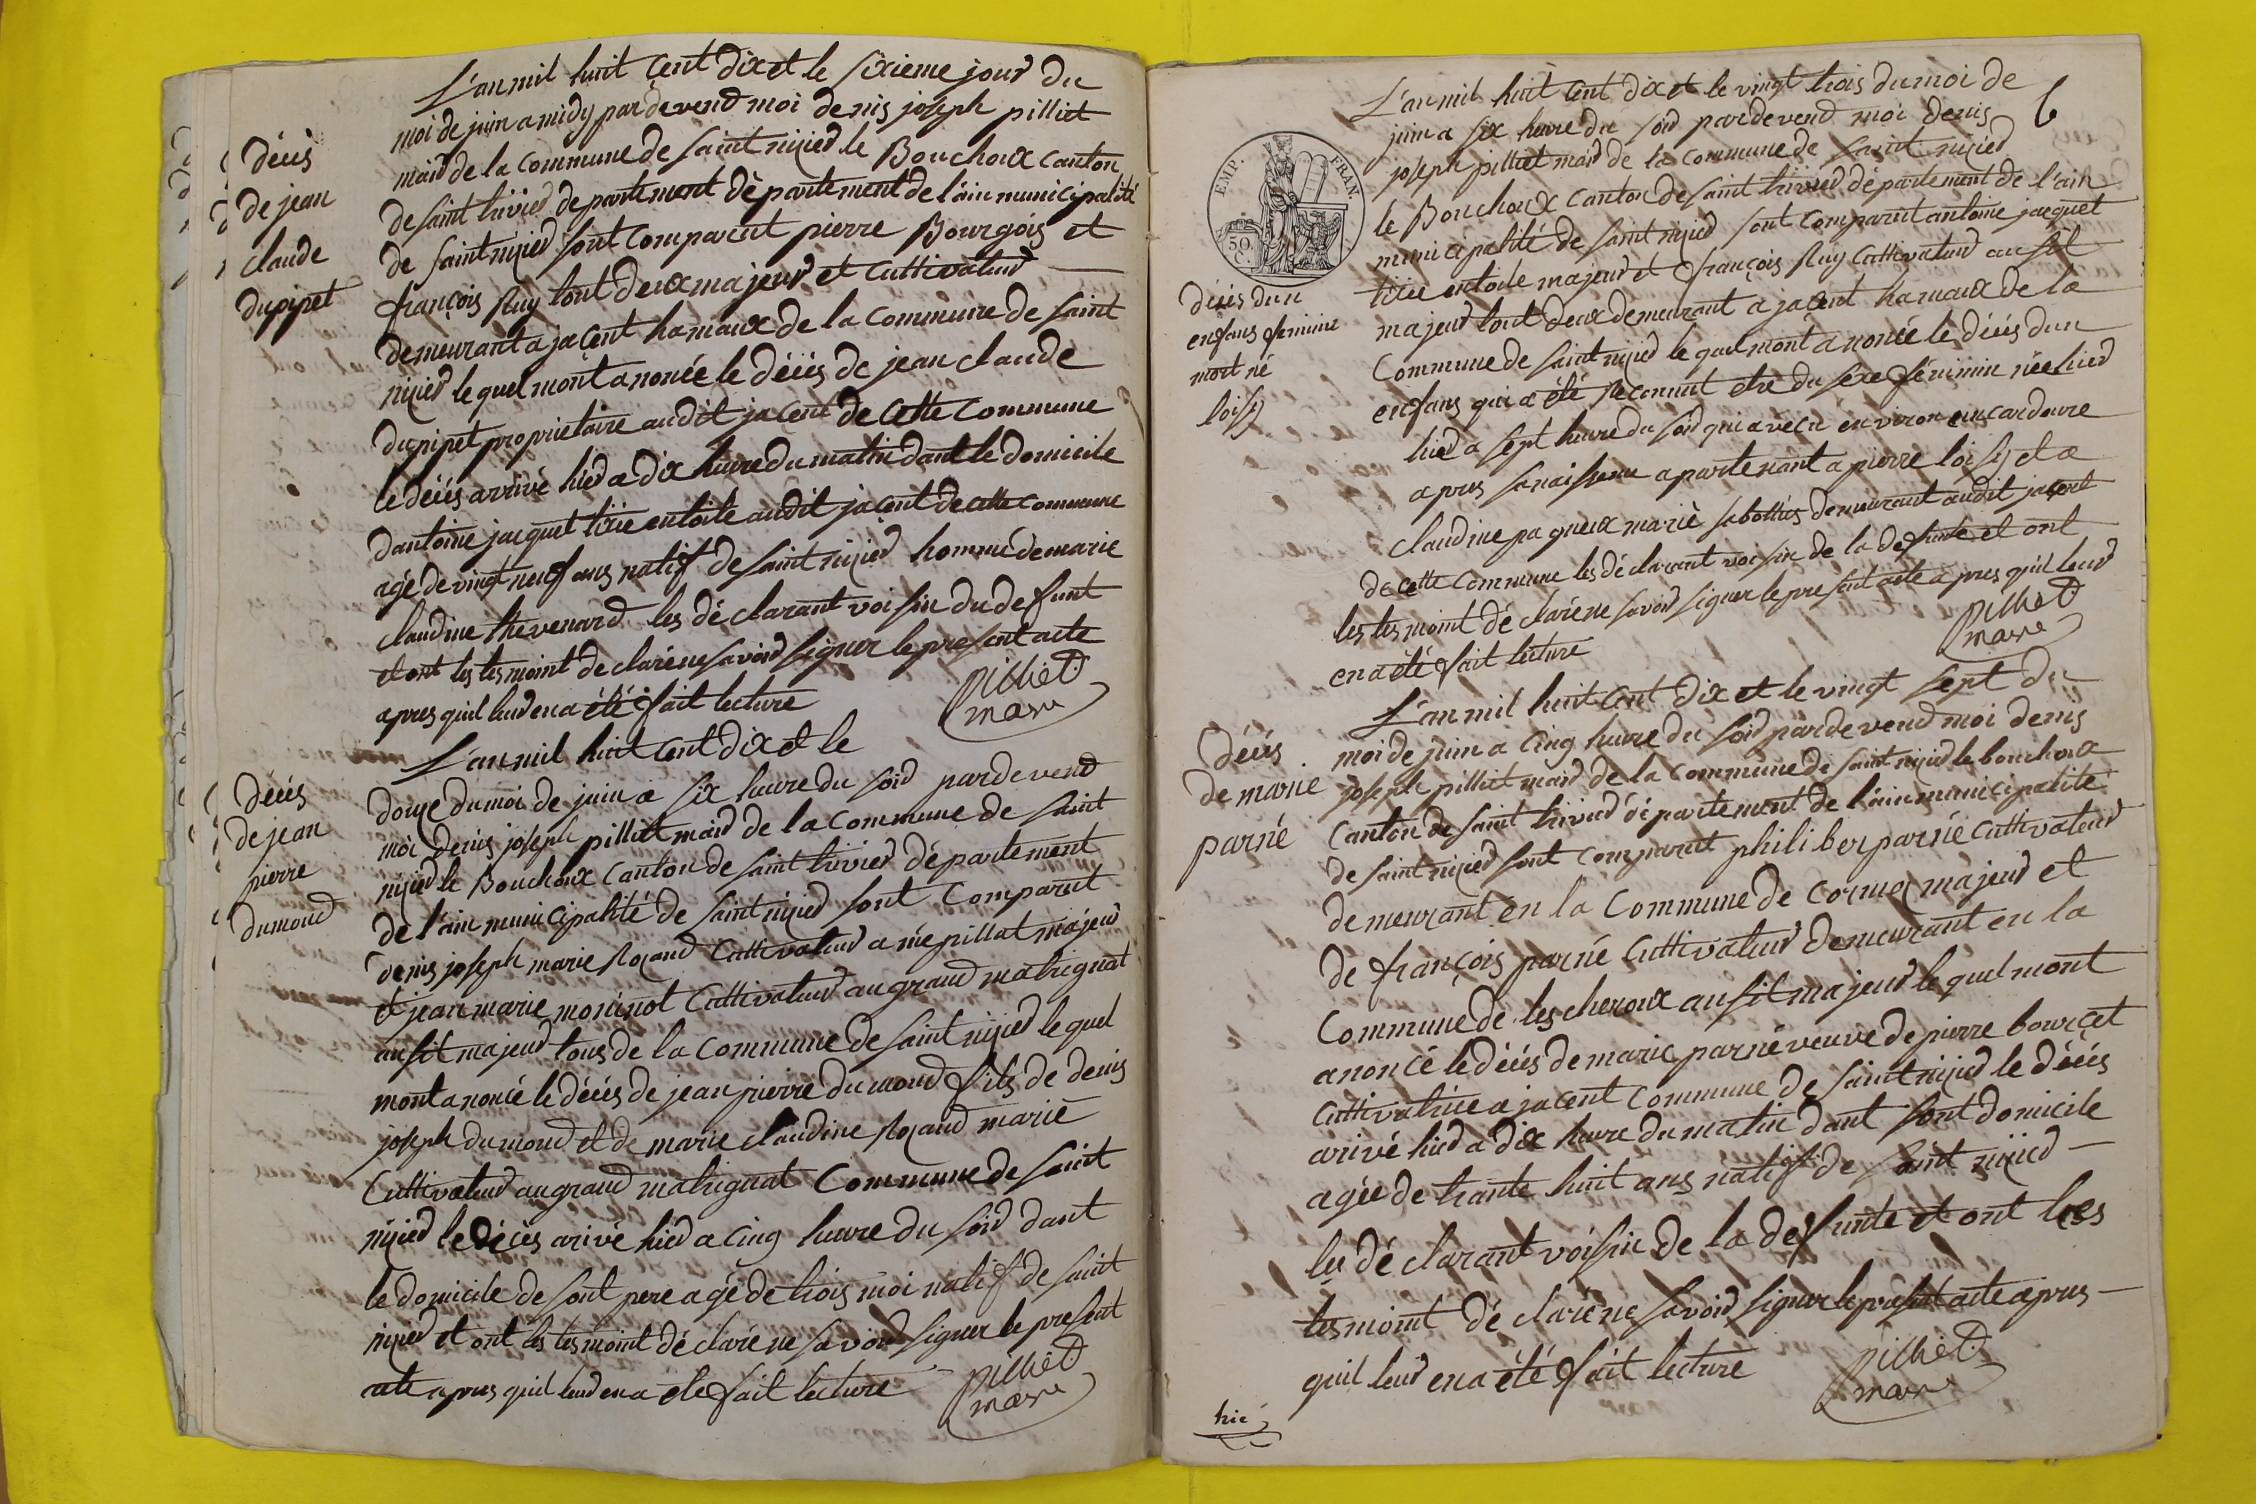 décès
de jean
claude
dupipet
L'an mil huit cent dix et le sixieme jour du
moi de juin a midy pardevend moi denis joseph pilliet
maird de la commune de saint nizied le Bouchoux canton
de saint trivied departement dèpartement de l'ain municipalité
de saint nizied sont comparent pierre Bourgois et
françois Ruy tout deux majeurd et cultivateurd
demeurant a jacent hamaux de la commune de saint
nizied le quel mont anoncée le décés de jean claude
dupipet proprietaire audit jacent de cette commune
le décés arrivé hied a dix heure du matin dant le domicile
dantoine jacquet tixie en toile audit jacent de cette commune
agé de vingt neuf ans natif de saint nizied hommé de marie
claudine thevenard les déclarant voisin du defunt
et ont les tesmoint declaré ne savoid signer le present acte
apres quil leurd en a été fait lecture
pilliet
maire
décés
de jean
pierre
dumond
L'an mil huit cent dix et le
douze du moi de juin a six heure du soid pardevend
moi denis joseph pilliet maird de la commune de saint
nizied le Bouchoux canton de saint trivied département
de l'ain municipalité de saint nizied sont comparut
denis joseph marie Rozand cultivateurd a mépillat majeurd
et jean marie moninot cultivateurd au grand matrignat
ausit majeurd tous de la commune de saint nizied le quel
mont anoncé le décés de jean pierre dumond fils de denis
joseph dumond et de marie claudine Rozand marié
cultivateurd au grand matrignat commune de saint
nizied le décés arivé hied a cinq heure du soid dant
le domicile de sont pere agé de trois moi natif de saint
nizied et ont les tesmoint déclaré ne savoird signer le present
acte apres quil leurd en a été fait lecture
pilliet
maire
6
EMP. FRAN.
50 C.
décès dun
enfans feminine
mort né
loisy
L'an mil huit cent dix et le vingt trois du moi de
juin a six heure du soid pardevend moi denis
joseph pilliet maird de la commune de saint nizied
le Bouchoux canton de saint trivied département de l'ain
municipalité de saint nizied sont comparut antoine jacquet
tixie en toile majeurd et françois Ruy cultivateurd ausit
majeurd tout deux demeurant a jacent hamaux de la
commune de saint nizied le quel mont anoncé le décés dun
enfans qui a été reconnut etre du sexe féminin née hied
hied a sept heure du soid qui a vécu environ un card deure
apres sa naissance apartenant a pierre loisy et a
claudine pagneux marié sabottiés demeurant audit jacent
de cette commune les déclarant voisin de la defunte et ont
les tesmoint déclaré ne savoid signer le present acte apres quil leurd
en a été fait lecture
pilliet
maire
décés
de marie
parné
L'an mil huit cent dix et le vingt sept du
moi de juin a cinq heure du soid pardevend moi denis
joseph pilliet maird de la commune de saint nizied le bouchoux
canton de saint trivied département de l'ain municipalité
de saint nizied sont comparut philiber parné cultivateurd
demeurant en la commune de cormoz majeurd et
de françois parné cultivateurd demeurant en la
commune de lescheroux ausit majeurd le quel mont
anoncé le décés de marie parné veuve de pierre bourcet
cultivatrice a jacent commune de saint nizied le décés
arivé hied a dix heure du matin dant sont domicile
agée de trante huit ans natif de saint nizied
les déclarant voisin de la defunte et ont les
tesmoint déclaré ne savoird signer le présent acte apres
quil leurd en a été fait lecture
pilliet
maire